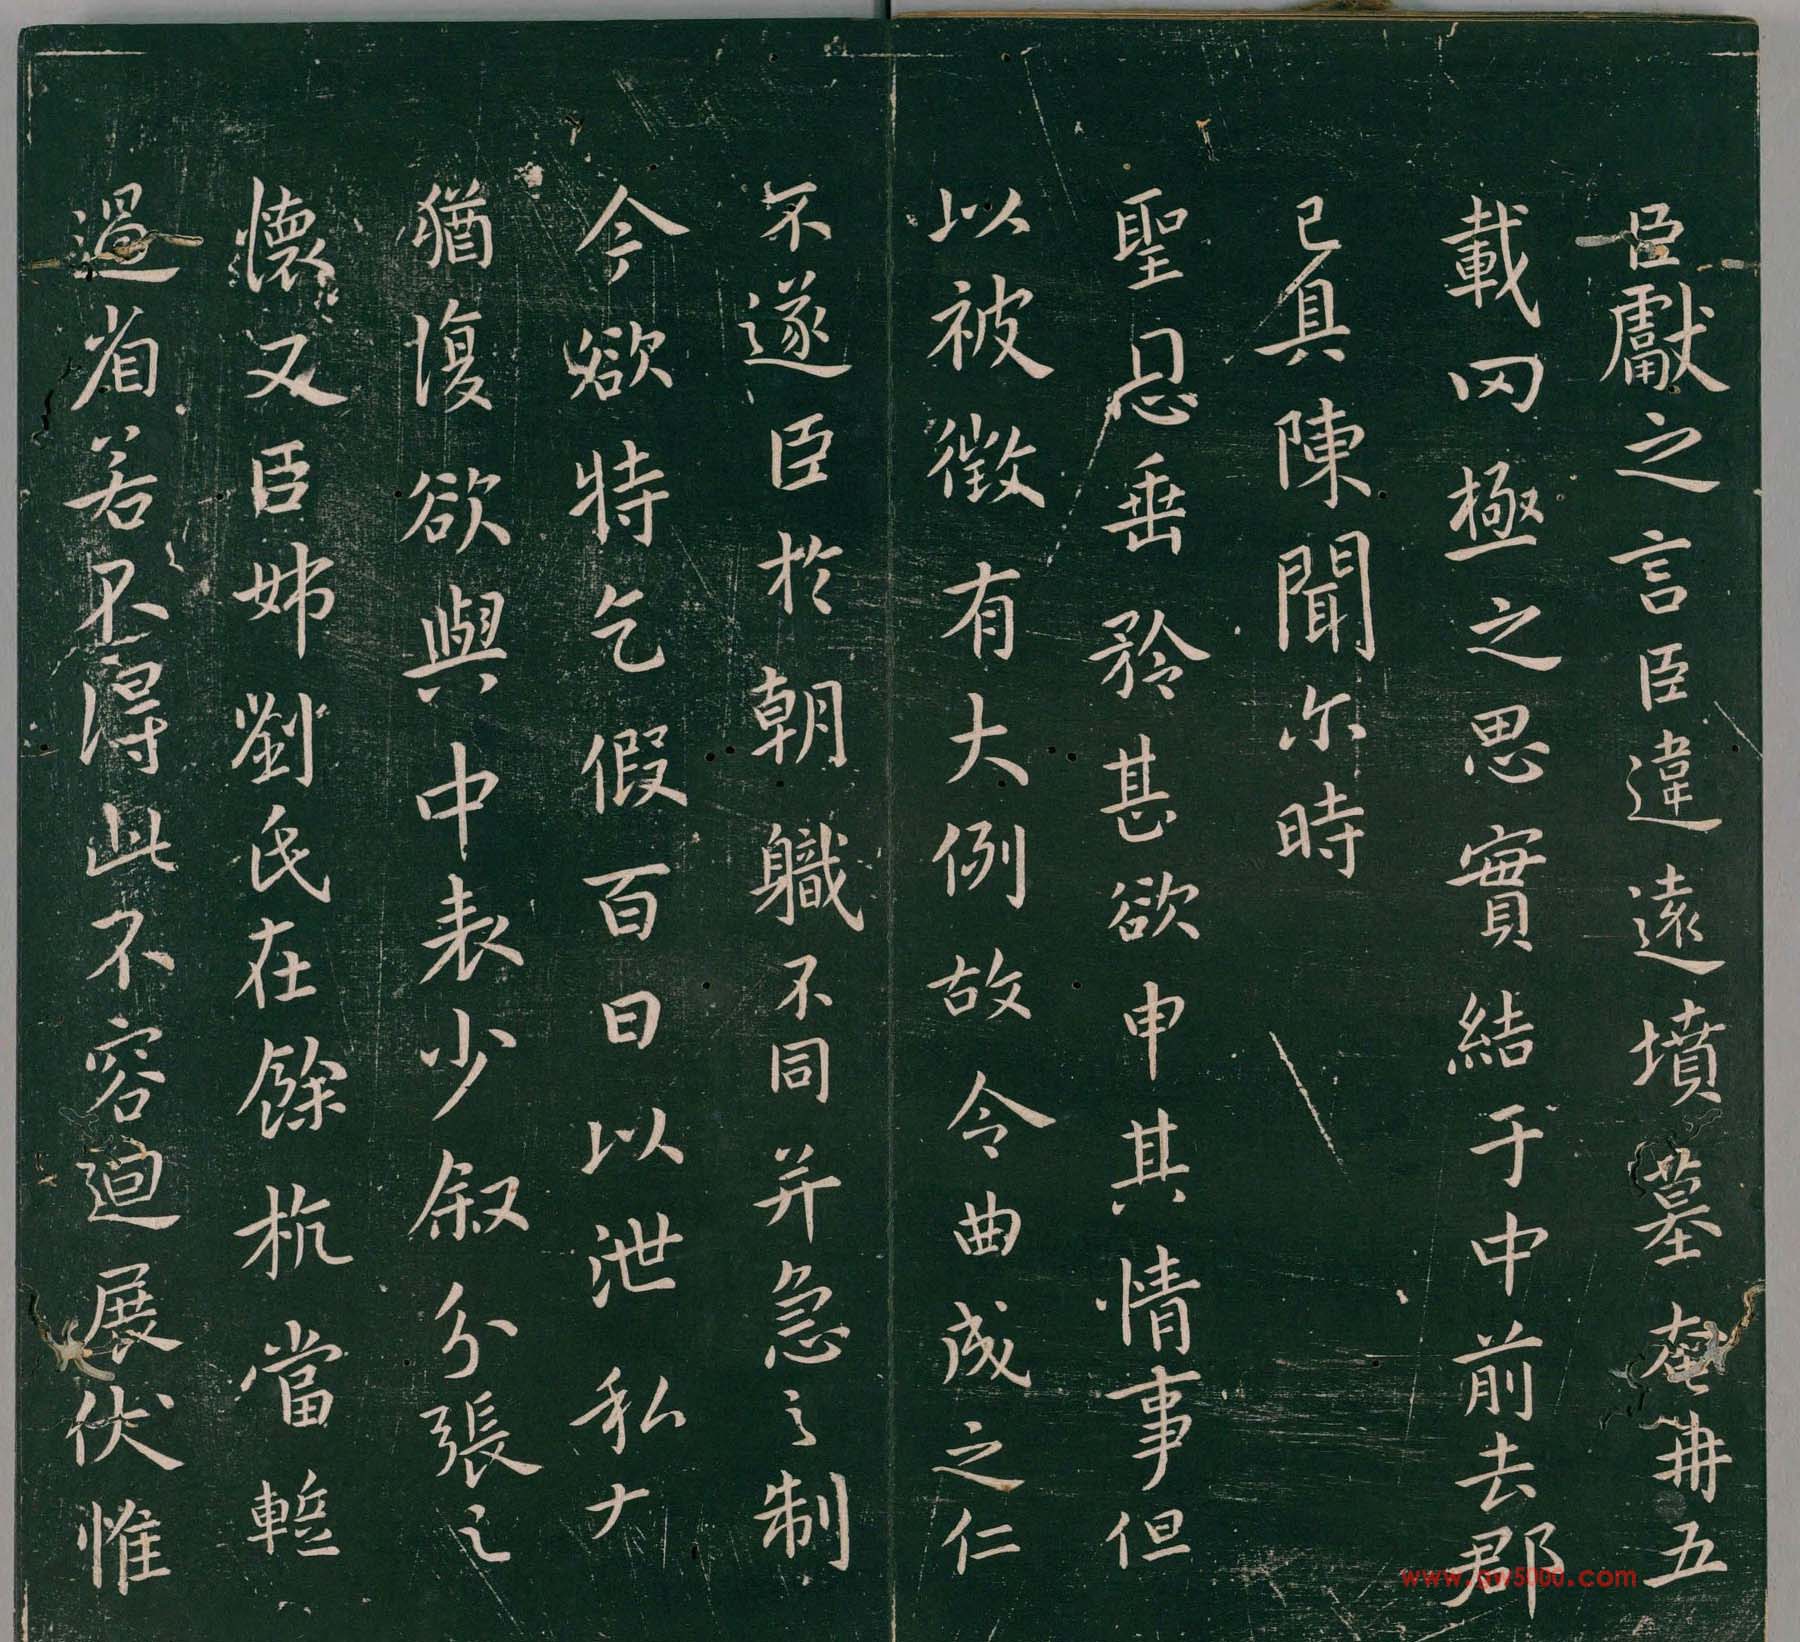 臣獻之言臣違遠墳墓奄冉五
載罔極之思實結于中前去郡
已具陳聞尓時
聖恩垂矜甚欲申其情事但
以被徵有大例故令曲成之仁
不遂臣於朝職不同并急之制
今欲特乞假百日以泄私
猶復欲與中表少叙分張之
懷又臣姊劉氏在餘杭當蹔
過省若不得此不容迴展伏惟
www.gw5000.com